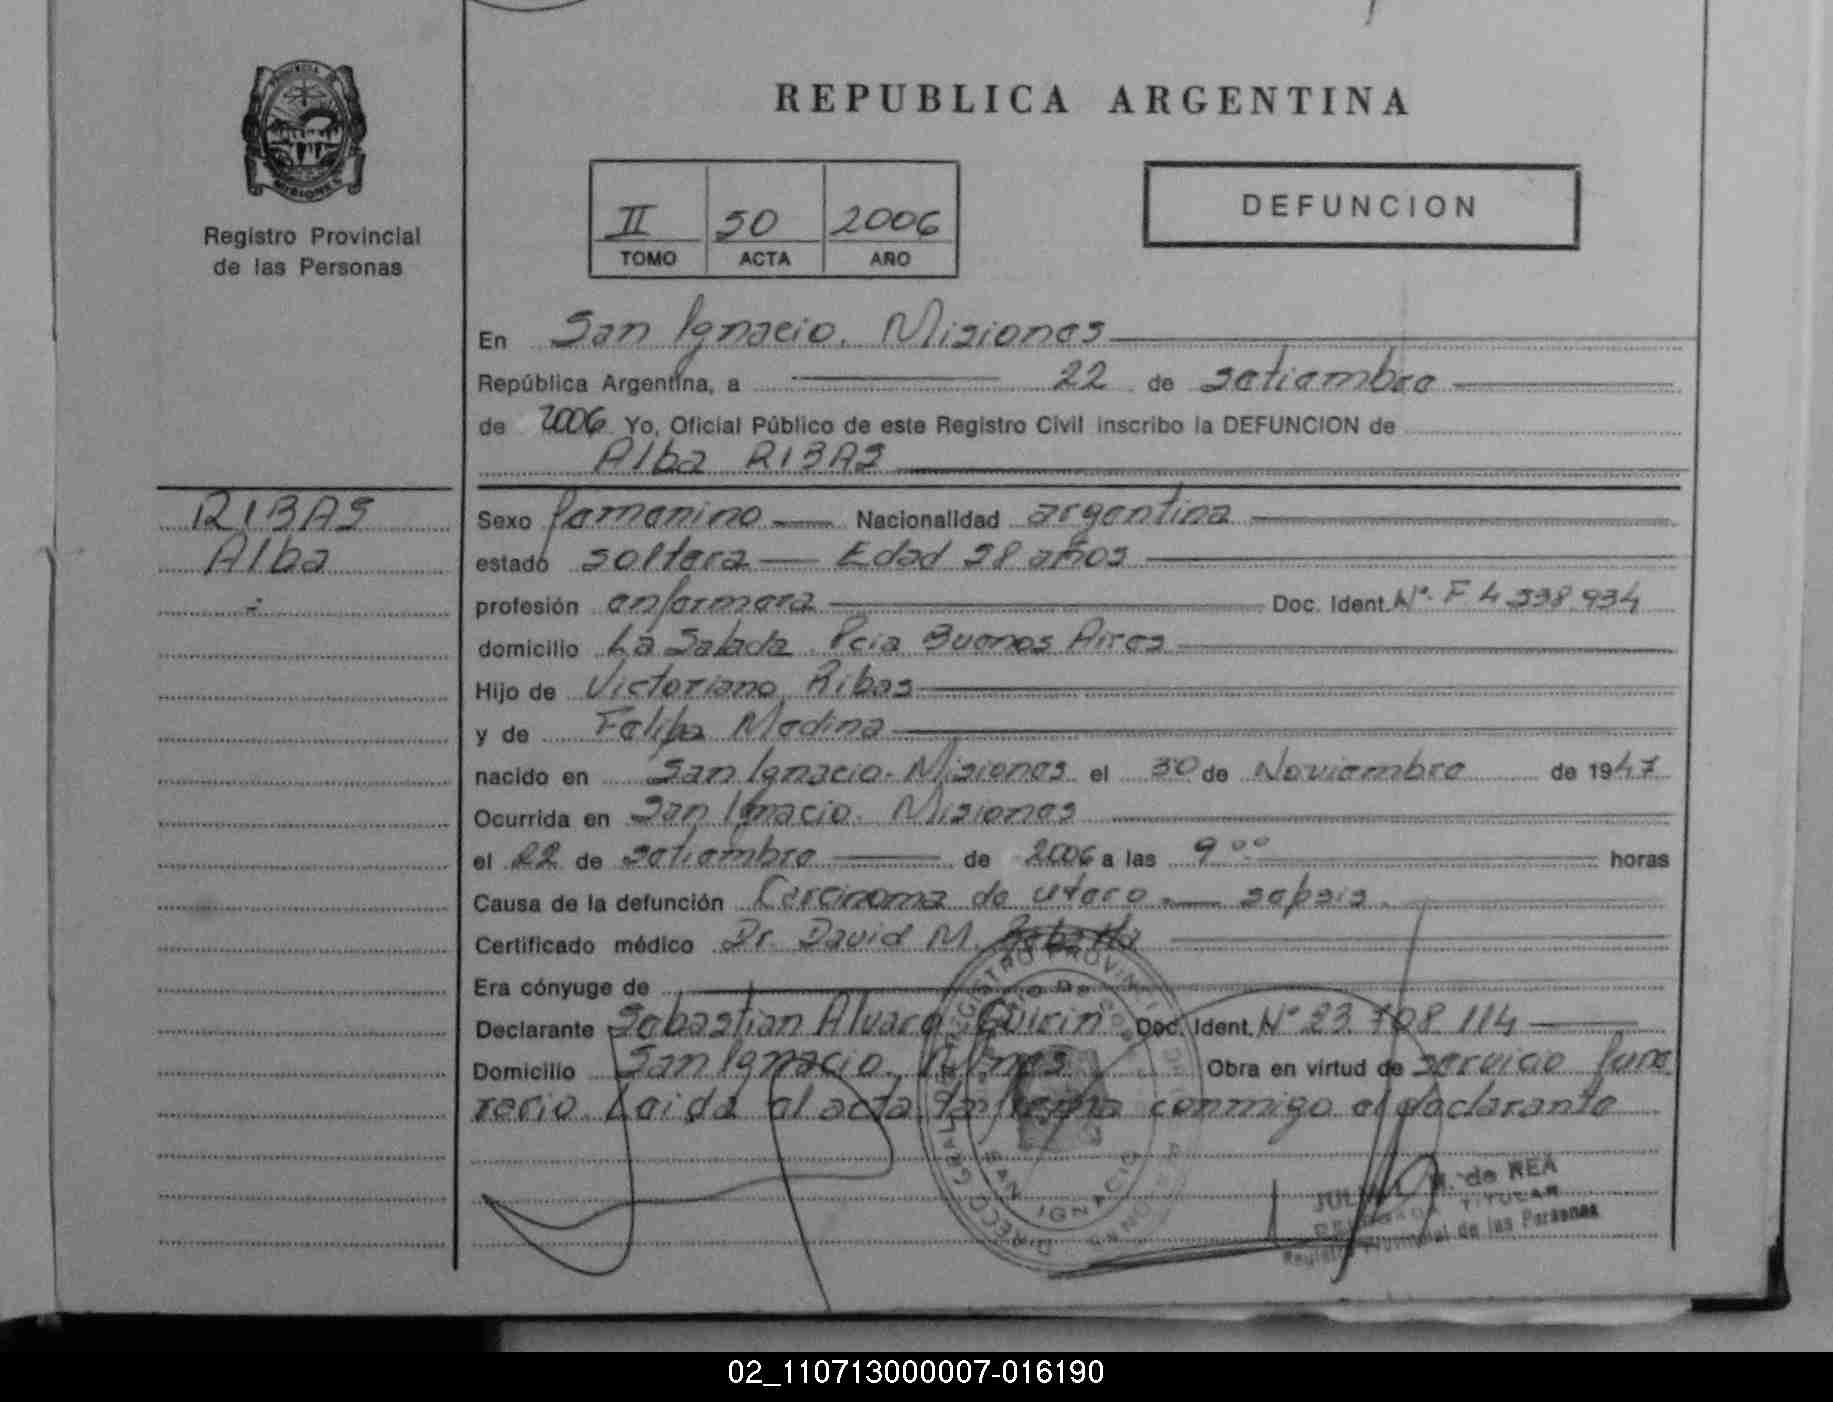 REPUBLICA ARGENTINA
Registro Provincial
de las Personas
II 50 2006
TOMO ACTA AÑO
DEFUNCION
En San Ignacio. Misiones
República Argentina, a 22 de setiembre
de 2006 Yo, Oficial Público de este Registro Civil inscribo la DEFUNCION de
Alba RIBAS
RIBAS
Alba
Sexo femenino Nacionalidad argentina
estado soltera Edad 58 años
profesión enfermera Doc. Ident. Nº. F 4.338.934
domicilio La Salada. Pcia Buenos Aires
Hijo de Victoriano Ribas
y de Felipa Medina
nacido en San Ignacio. Misiones el 30 de Noviembre de 1947
Ocurrida en San Ignacio. Misiones
el 22 de setiembre de 2006 a las 9 00 horas
Causa de la defunción Carcinoma de utero - sepsis.
Certificado médico Dr. David M.
Era cónyuge de
Declarante Sebastian Alvaro Quirin Doc. Ident. Nº 23.708.114
Domicilio San Ignacio. Mnes Obra en virtud de servicio fune
rerio. Leida el acta la firma conmigo el declarante
SAN IGNACIO
M. de REA
TITULAR
Registro Provincial de las Personas
02_110713000007-016190